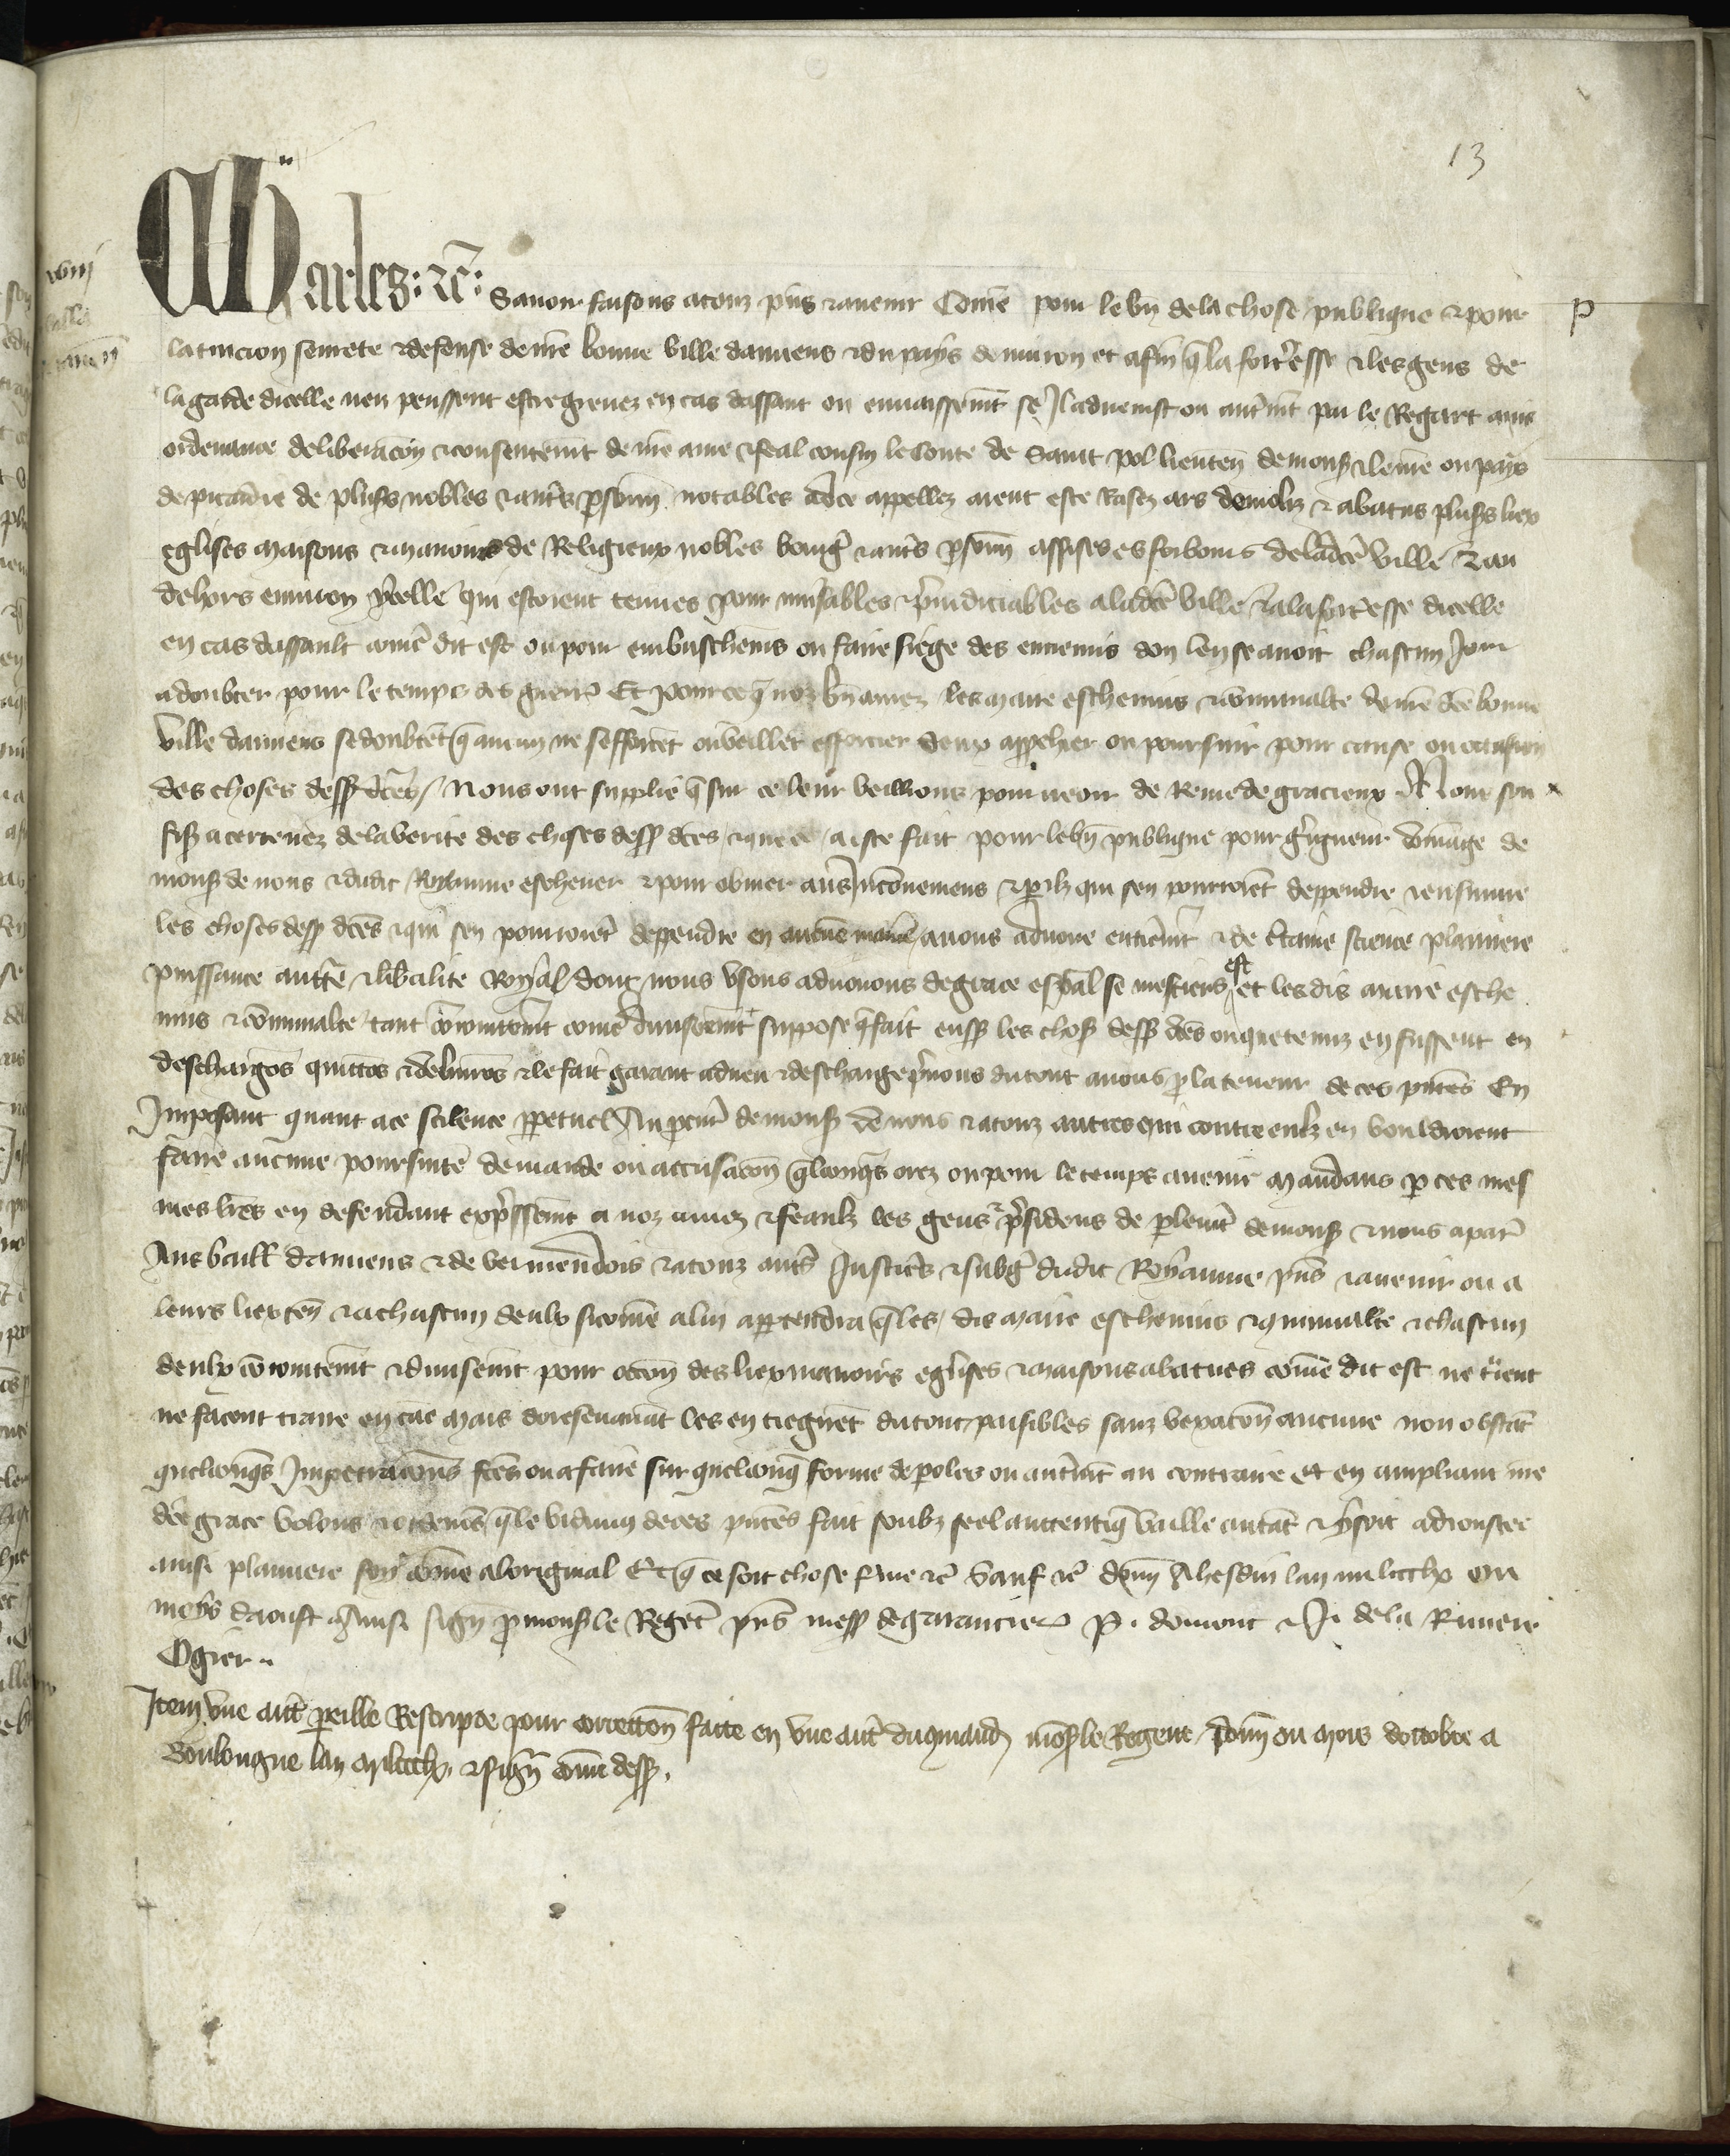 13
Charlez : etc̃ : Savoir faisons a touz p̃ns et avenir Com̃e pour le bn̄ de la chose publique et pour
P
la tuicion seurete et defense de nr̃e bonne ville damiens et du pays denviron et afin q̃ la fort̃esse et les gens de
la garde dicelle nen peussent estre grevez en cas dassaut ou envaissem̃t se Il advenist ou autrem̃t par le Regart avis
ordenance deliberac̃on et consentem̃t de nr̃e ame et feal cousin le Conte de Saint Pol lieuten̄ de mons̃ et le nr̃e ou pays
de picardie de plus̃s nobles et autr̃s p̃sonn̄ notables ad ce appellez aient este Rasez ars demoliz et abatus plus̃s liex
eglises maisons et manoirs de Religieux nobles bourg̃ et autr̃s p̃sonn̄ assises es forbours de lad̃ce ville et au
dehors environ ycelle qui estoient tenues pour nuisables et p̃iudiciables a lad̃ce ville et a la fort̃esse dicelle
en cas dassault com̃e dit est ou pour embuschem̃s ou faire siege des ennemis don len se avoit chascun Jour
a doubter pour le temps des guerr̃ Et pour ce q̃ noz bn̄ amez les maire eschevins et com̃unalte de nr̃e d̃ce bonne
ville damiens se doubtẽt q̃ aucun ne sefforcẽt ou veillet efforcier deux app̃chier ou poursuir pour cause ou occasion
des choses dess̃ d̃ces / Nous ont supplie q̃ sur ce leur veillions pourveoir de Remede gracieux Nous sou
fis̃ acertenez de la verite des choses dess̃ d̃ces et que ce a este fait pour le bn̄ publique pour g̃gneur dom̃age de
mons̃ de nous et dudit Royaume eschever et pour obvier aus Inconveniens et p̃ilz qui sen pourroiẽt deppendre et ensuivre
les choses dess̃ d̃ces et qui sen pourroiẽt deppendre en aucune manie avons advoue entierem̃t et de c̃taine science planniere
puissance autt̃e et lib̃alite Royal dont nous usons advouons de grace esp̃al se mestiers est et les dis maire esche
vins et com̃unalte tant coniointem̃t com̃e divisem̃t suppose q̃ fait eus̃s les chos̃ dess̃ d̃ces ou que tenuz en fussent en
deschargõs quittõs et delivrõs et le fait garant adveu et descharge p̃nons du tout a nous p̃ la teneur de ces p̃ntes En
Imposant quant a ce scilence p̃petuel Au pcur̃ de mons̃ de nous et a touz autres qui contre eulz en vouldroient
faire aucune poursuite demande ou accusac̃on q̃lconq̃s orez ou pour le temps avenir Mandans p̃ ces mes
mes lr̃es en defendant exp̃ssem̃t a noz amez et feaulz les gens p̃sidens de p̃lem̃t de mons̃ et nous a par̃
Aus baill̃ damiens et de vermendois et a touz autr̃s Justicr̃s et subg̃ dudit Royaume p̃ns et avenir ou a
leurs lieuten̄ et a chascun deulx sicom̃e a lui app̃tendra q̃ les dis maire eschevins et com̃unalte et chascun
deulx coniointem̃t et divisem̃t pour occ̃on des liex manoirs eglises et maisons abatues com̃e dit est ne traient
ne facent traire en cas mais doresenavant les en tiegnẽt du tout paisibles sanz vexac̃on aucune non obstãt
quelconq̃s Impetrac̃ons fc̃es ou a faire sur quelconq̃ forme de paroles ou autrem̃t au contraire et en ampliant nr̃e
d̃ce grace volons et ordenõs q̃ le vidimus de ces p̃ntes fait soubz seel auttentiq̃ vaille autãt et y soit adioustee
aussi planniere foy com̃e a loriginal Et q̃ ce soit chose ferme etc̃ Sauf etc̃ Donn̄ A hesdin lan mil ccclx ou
moys daoust Ainsi sign̄ p̃ mons̃ le Regẽt p̃ns mess̃ de garancier P. domont et J. de la Riviere
Ogier ..
Item une autr̃ p̃eille Rescripte pour correction faite en une autr̃ du com̃and̃ mons̃ le Regent Donn̄ ou mois doctobre a
Boulongne lan mil ccclx. et sign̄ com̃ dess̃.